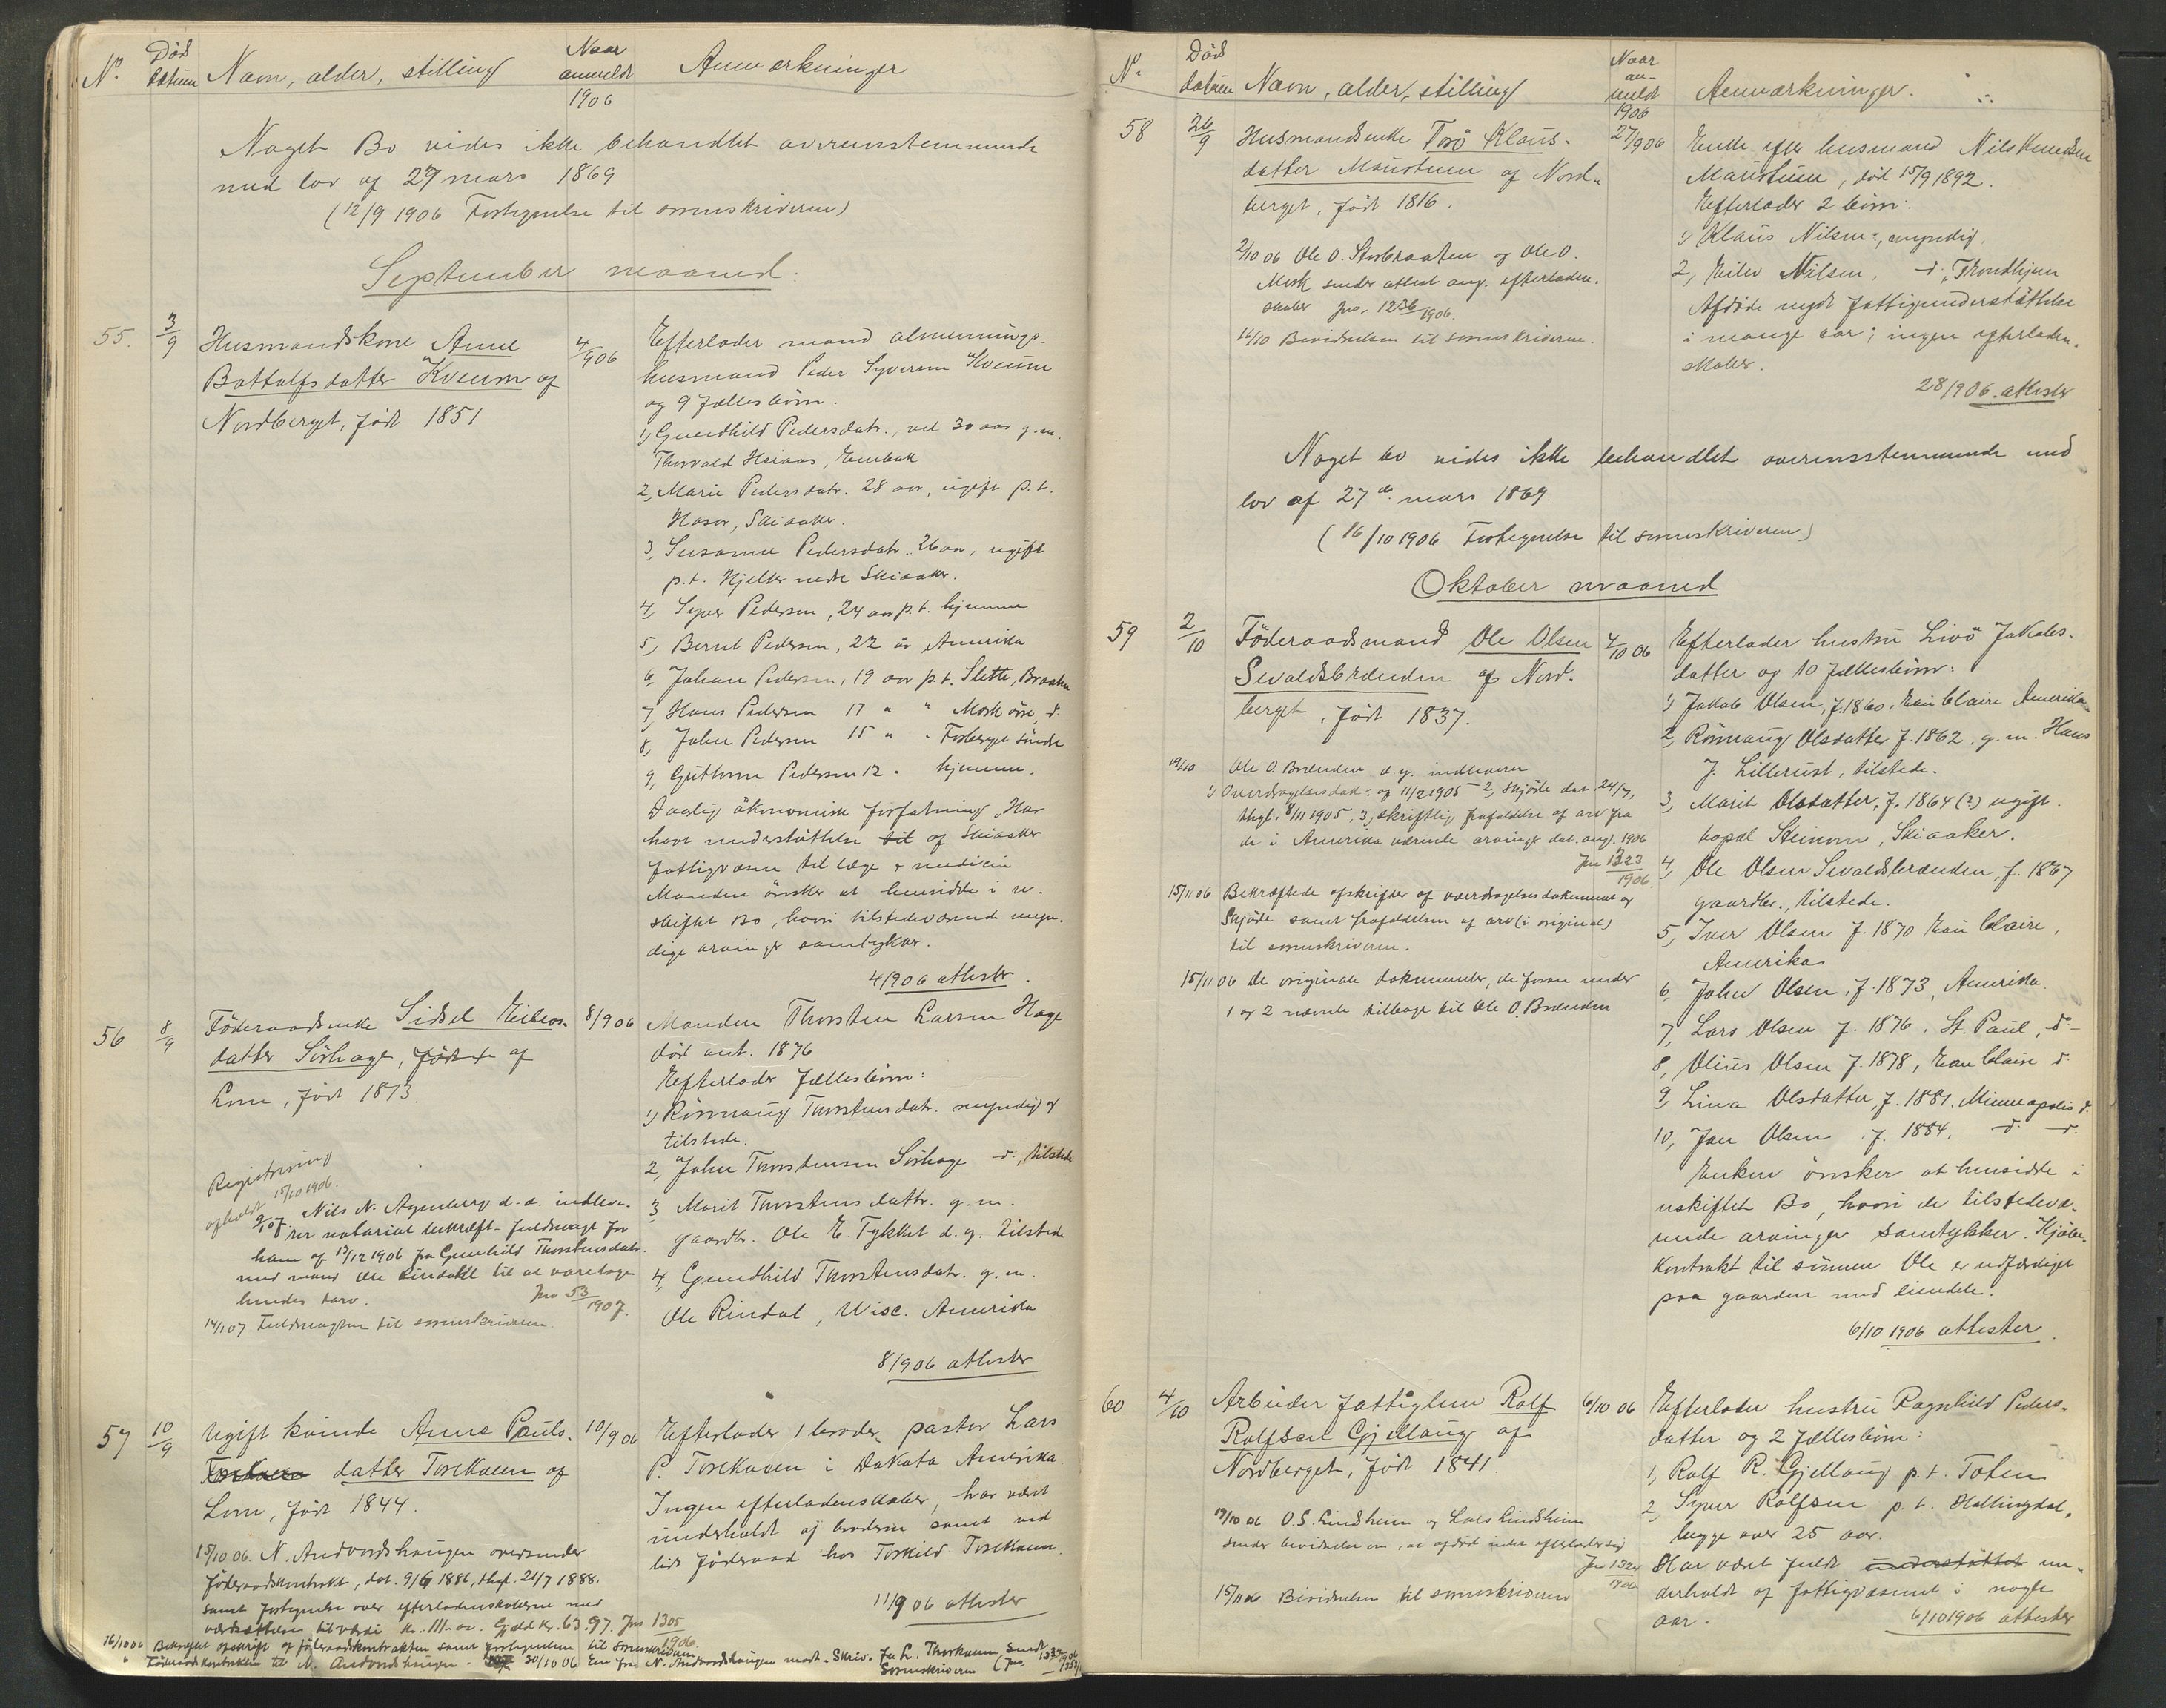 No. Død datum Navn, alder, stilling Naar anmeldt 1906 Anmærkninger
Noget Bo vides ikke behandlet overensstemmende
med lov af 27 mars 1869
(12/9 1906 Fortegnelse til sorenskriveren)
September maaned.
55. 3/9 Husmandskone Anne
Bottolfsdatter Kveum af
Nordberget, født 1851
4/9 06
Efterlader mand almennings-
husmand Peder Syversen Kveum
og 9 fællesbørn.
1, Gundhild Pedersdatr., vel 30 aar g.m.
Thorvald Heiaas,
2, Marie Pedersdatr. 28 aar, ugift p.t.
Skiaaker.
3, Susanne Pedersdatr. 26 aar, ugift
p.t. Hjelter nedre Skiaaker.
4, Syver Pedersen, 24 aar p.t. hjemme
5, Bernt Pedersen, 22 år Amerika
6, Johan Pedersen, 19 aar p.t. Slette, Braaten
7, Hans Pedersen 17 " " Mork øvre, do.
8, John Pedersen 15 " " Forberget søndre
9, Guttorm Pedersen 12 " hjemme.
Daarlig økonomisk forfatning. Har
havt understøttelse til af Skiaaker
fattigvæsen til læge & medicin
Manden ønsker at hensidde i u-
skiftet Bo, hvori tilstedeværende myn-
dige arvinger samtykker.
4/9 06 attester.
56 8/9 Føderaadsenke Sidsel Eilevs-
datter Sørhage, født af
Lom, født 1813.
8/9 06
Manden Thorsten Larsen Hage
død ant. 1876
Efterlader fællesbørn:
1, Rønnaug Thorstensdatr. myndig og
tilstede.
2, John Thorstensen Sørhage do., tilstede
3, Marit Thorstensdattr. g.m.
gaardbr. Ole E. Tykket d.y. tilstede
4, Gundhild Thorstensdatr. g.m.
Ole Rindal, Wisc. Amerika
8/9 06 attester
Registrering
afholdt 15/10 1906.
9/1 07. Nils N. Aggenberg d.æ. indleve-
rer notarial bekræft. fuldmagt for
ham af 13/12 1906 fra Gunhild Thorstensdatr.
med mand Ole Rindahl til at varetage
hendes tarv. Jno 53/1907.
14/1 07 Fuldmagten til sorenskriveren.
57 10/9 Ugift kvinde Anne Pauls-
datter Torekveen af
Lom, født 1844.
10/9 06
Efterlader 1 broder, pastor Lars
P. Torekveen i Dakota Amerika.
Ingen efterladenskaber, har været
underholdt af broderen samt ved
lidt føderaad hos Torkild Torekveen.
11/9 06 attester
15/10 06. N. Andvordshaugen oversender
føderaadskontrakt, dat. 9/6 1886, thgl. 21/7 1888.
samt fortegnelse over efterladenskaberne med
værdsættelse til værdi kr. 111-00. Gjæld Kr. 63.97. Jno 1305/1906.
16/10 06 Bekræftet afskrift af føderaadskontrakten samt fortegnelsen til sorenskriveren
" Føderaadskontrakten til N. Andvordshaugen. 30/10 06 fra N. Andvordshaugen modt. Skriv. fra L. Thorkveen, sendt
Sorenskriveren
No. Død datum Navn, alder, stilling Naar anmeldt 1906 Anmærkninger.
58 26/9 Husmandsenke Torø Klaus-
datter Maurstuen af Nord-
berget, født 1816.
27/9 06
Enke efter husmand Nils Knudsen
Maurstuen, død 15/9 1892.
Efterlader 2 børn:
1, Klaus Nilsen, myndig.
2, Eilev Nilsen, do., Trondhjem
Afdøde nydt fattigunderstøttelse
i mange aar; ingen efterladen-
skaber.
28/9 06. attester
2/10 06 Ole O. Storbraaten og Ole O.
Mork sender attest ang. efterladen-
skaber Jno. 1236/1906.
16/10 Bevidnelsen til sorenskriveren.
Noget bo vides ikke behandlet overensstemmende med
lov af 27de mars 1869.
(16/10 1906 Fortegnelse til sorenskriveren)
Oktober maaned
59 2/10 Føderaadsmand Ole Olsen
Sevaldsbrænden af Nord-
berget, født 1837.
4/10 06
Efterlader hustru Livø Jakobs-
datter og 10 fællesbørn:
1, Jakob Olsen, f. 1860, Eau Claire Amerika
2, Rønnaug Olsdatter f. 1862, g.m. Hans
J. Lillerust, tilstede.
3, Marit Olsdatter, f. 1864 (?) ugift.
Steinom, Skiaaker.
4, Ole Olsen Sevaldsbrænden, f. 1867
gaardbr., tilstede.
5, Iver Olsen f. 1870 Eau Claire,
Amerika
6, John Olsen, f. 1873, Amerika.
7, Lars Olsen f. 1876, St. Paul, do.
8, Olius Olsen f. 1878, Eau Claire do.
9, Lina Olsdatter, f. 1881. Minneapolis do.
10, Jan Olsen f. 1884, do. do.
Enken ønsker at hensidde i
uskiftet Bo, hvori de tilstedevæ-
rende arvinger samtykker. Kjøbe-
kontrakt til sønnen Ole er udfærdiget
paa gaarden med eiendele.
6/10 1906 attester.
19/10 Ole O. Brænden d.y. indleverer
1, Overdragelsesdok. af 11/2 1905 2, skjøde dat. 24/7,
thgl. 8/11 1905, 3, skriftlig frafaldelse af arv fra
de i Amerika værende arvinger dat. aug. 1906
Jno 1323/1906.
15/11 06 Bekræftede afskrifter af overdragelsesdokument og
Skjøde samt frafaldelsen af arv (i original)
til sorenskriveren.
15/11 06 De originale dokumenter, de foran under
1 og 2 nævnte tilbage til Ole O. Brænden
60 4/10 Arbeider fattiglem Rolf
Rolfsen Gjellaug af
Nordberget, født 1841.
6/10 06
Efterlader hustru Ragnhild Peders-
datter og 2 fællesbørn:
1, Rolf R. Gjellaug p.t. Toten
2, Syver Rolfsen p.t. Hallingdal,
begge over 25 aar.
Har været fuldt understøttet un-
derholdt af fattigvæsenet i nogle
aar.
6/10 1906 attester
19/10 06 O.S. Lindsheim og Lars Lindsheim
sender bevidnelse om, at afdød intet efterlader sig
15/11 06 Bevidnelsen til sorenskriveren